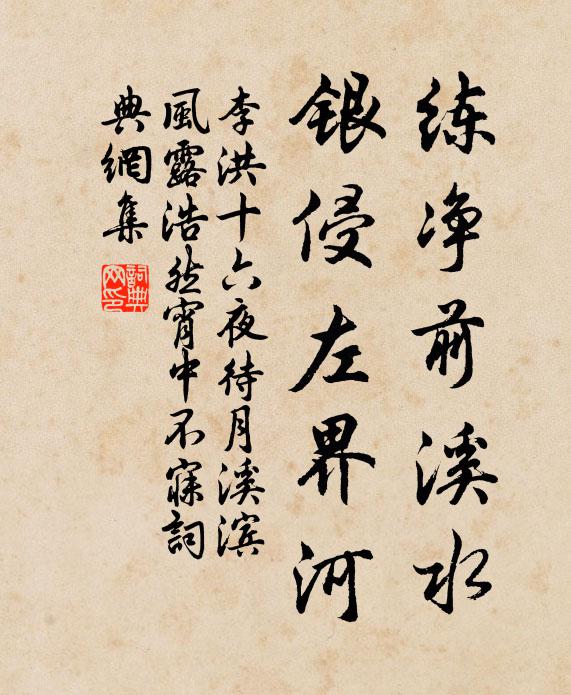 练净前溪水
银侵左界河
李洪十六夜待月溪滨
風露浩然宵中不寐詞
典網集
詞典网印